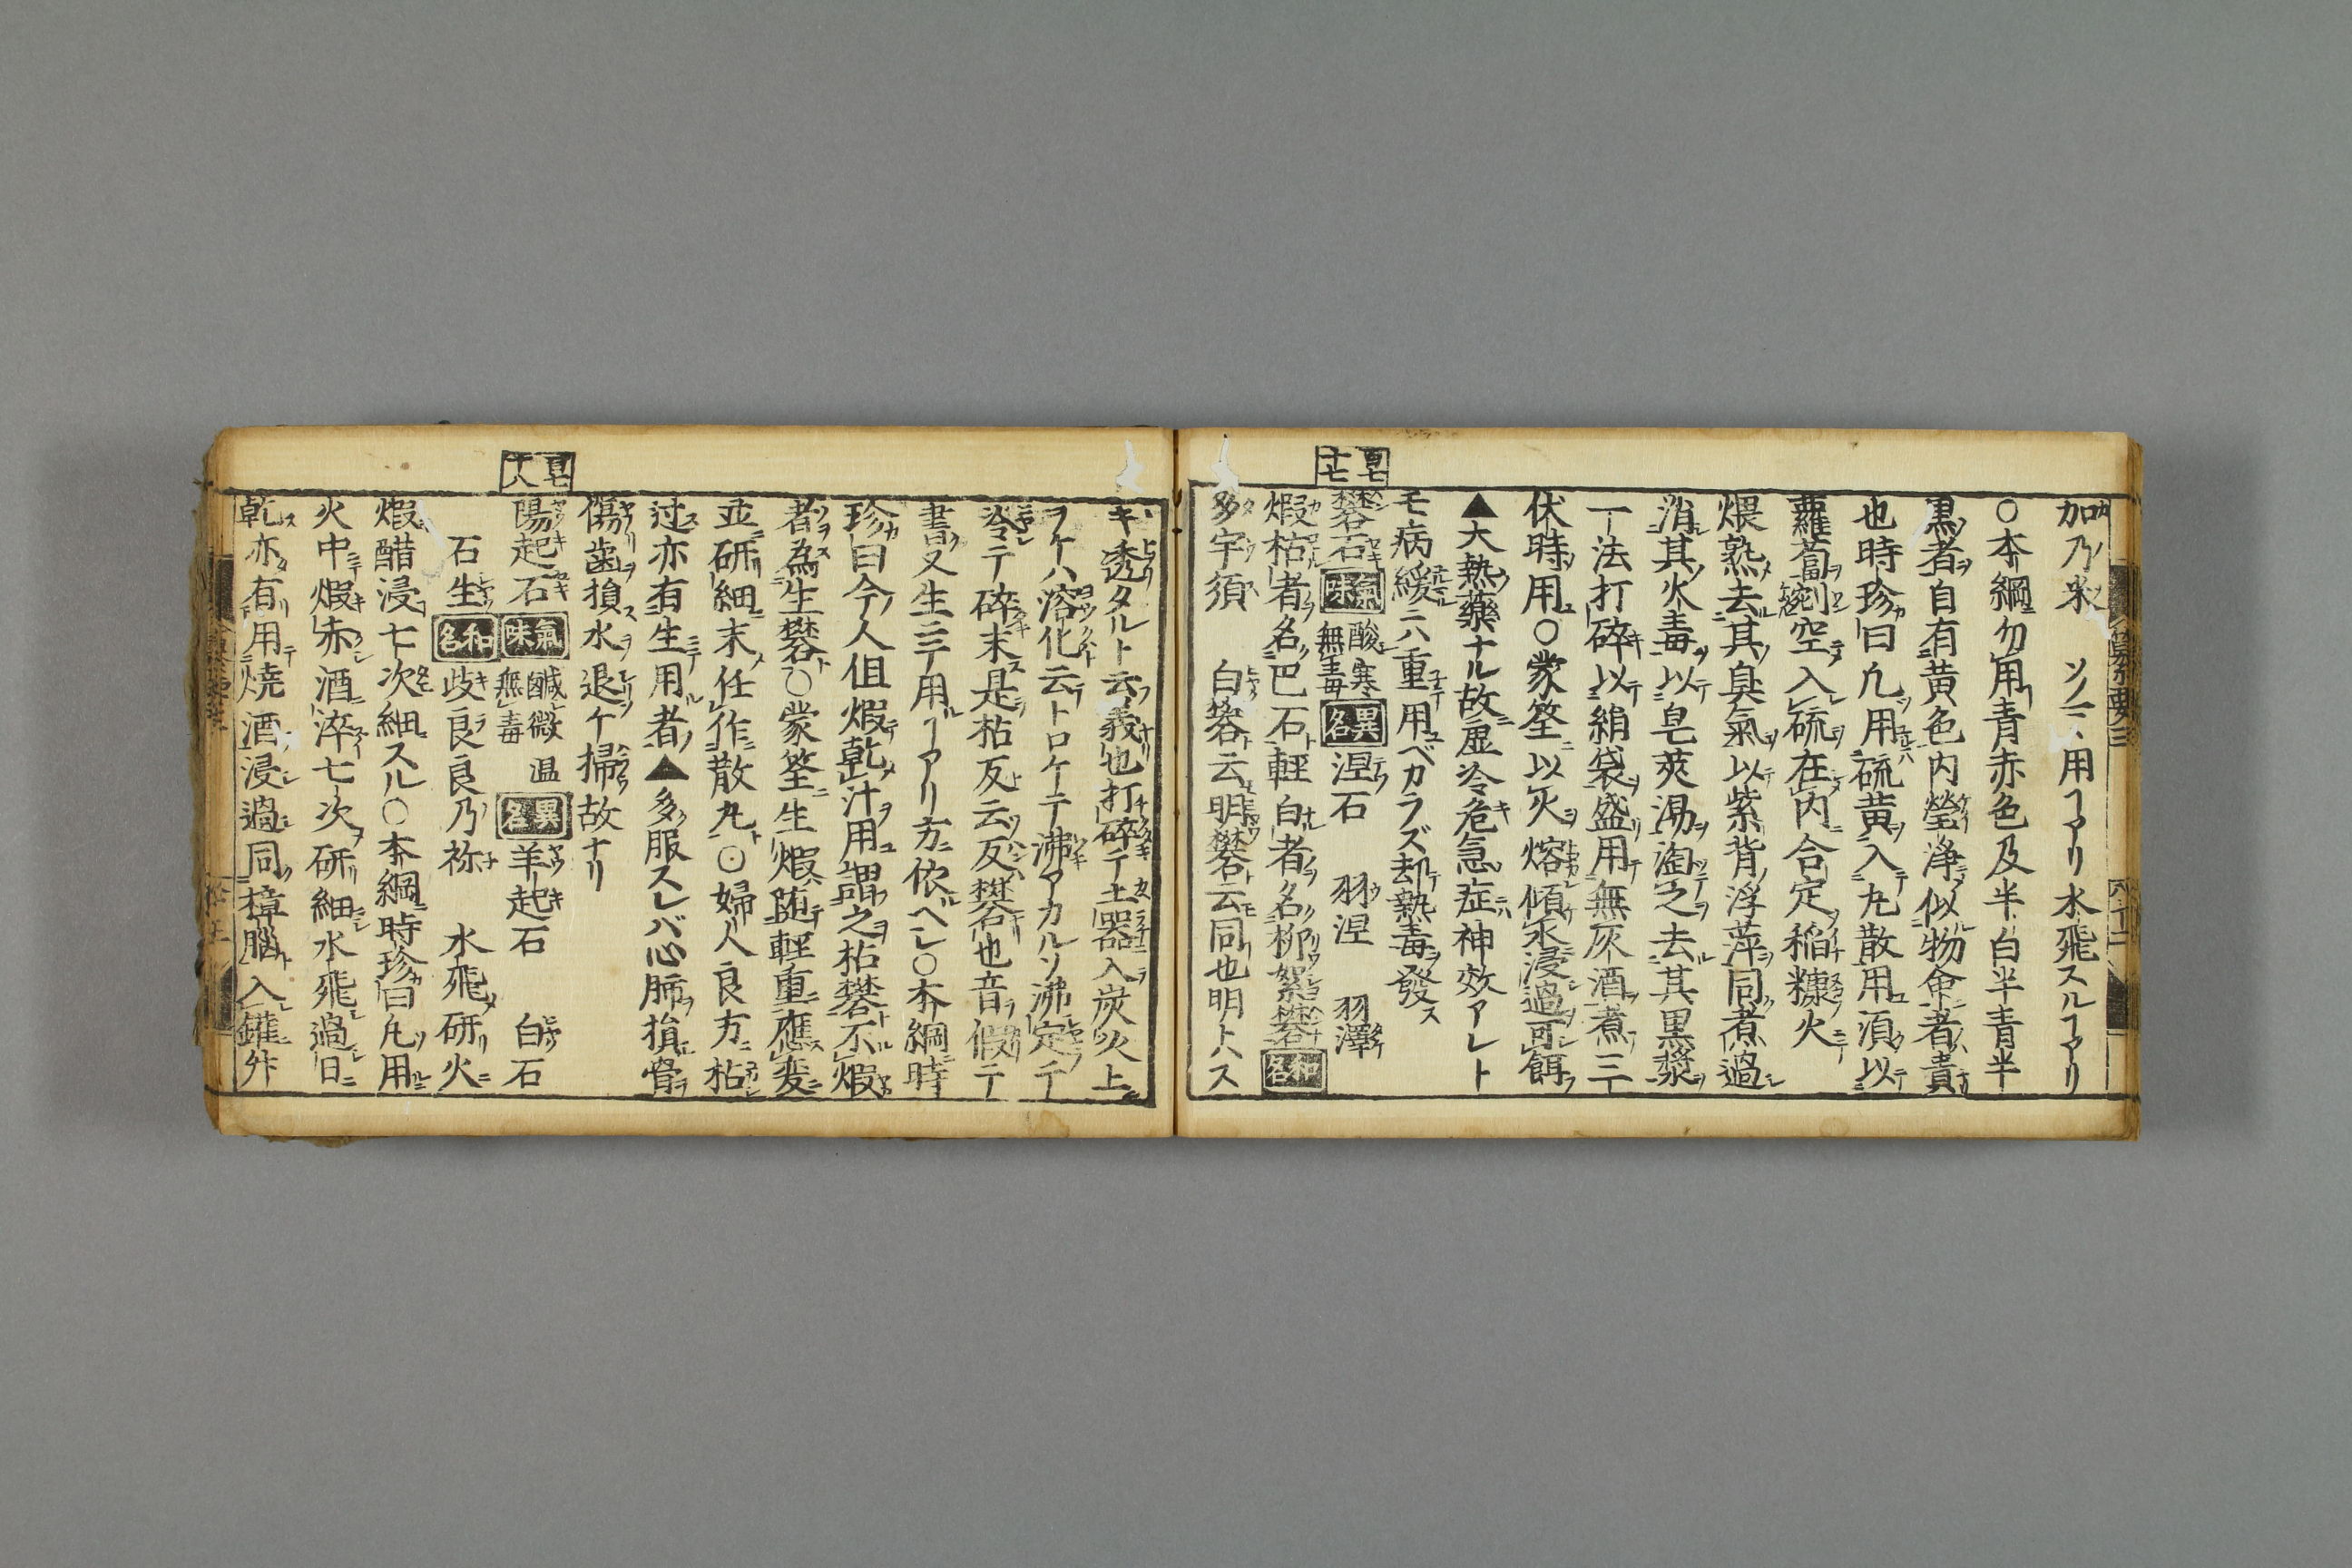 加乃米 ソノマヽ用ヿアリ水飛スルヿアリ
○本綱勿用青赤色及半白半青半
黒者自有黄色内瑩浄似物命者貴
也時珍曰凡用硫黄入丸散用須以
蘿蔔剜空入硫在内合定稲糠火
煨熟去其臭氣以紫背浮萍同煮過
消其火毒以皂莢湯淘之去其黒漿
一法打碎以絹袋盛用無灰酒煮三
伏時用○蒙筌以火熔傾水浸過可餌
▲大熱藥ナル故虛冷危急症神效アレト
モ病緩ニハ重用ユベカラズ却熱毒ヲ發ス
百七十七
礬石 氣味 酸寒無毒 異名 涅石 羽涅 羽澤
煅枯者名巴石輕白者名柳絮礬 和名
多宇須 白礬云明礬云同也明トハス
キ透タルト云義也打碎テ土器入炭火上
ヲケハ溶化云トロケテ沸アカルソ沸定テ
冷テ碎末是枯反云反礬也音假テ
書又生ニテ用ヿアリ方ニ依ベシ○本綱時
珍曰今人但煅乾汁用謂之枯礬不煅
者為生礬○蒙筌生煅随輕重應変
並研細末任作散丸○婦人良方枯
过亦有生用者▲多服スレバ心肺損骨
傷歯損水退ケ掃故ナリ
百七十八
陽起石 氣味 鹹微温無毒 異名 羊起石 白石
石生 和名 岐良良乃祢 水飛研火
煅醋浸七次細スル○本綱時珍曰凡用
火中煅赤酒淬七次研細水飛過日
乾亦有用焼酒浸過同樟脳入罐升